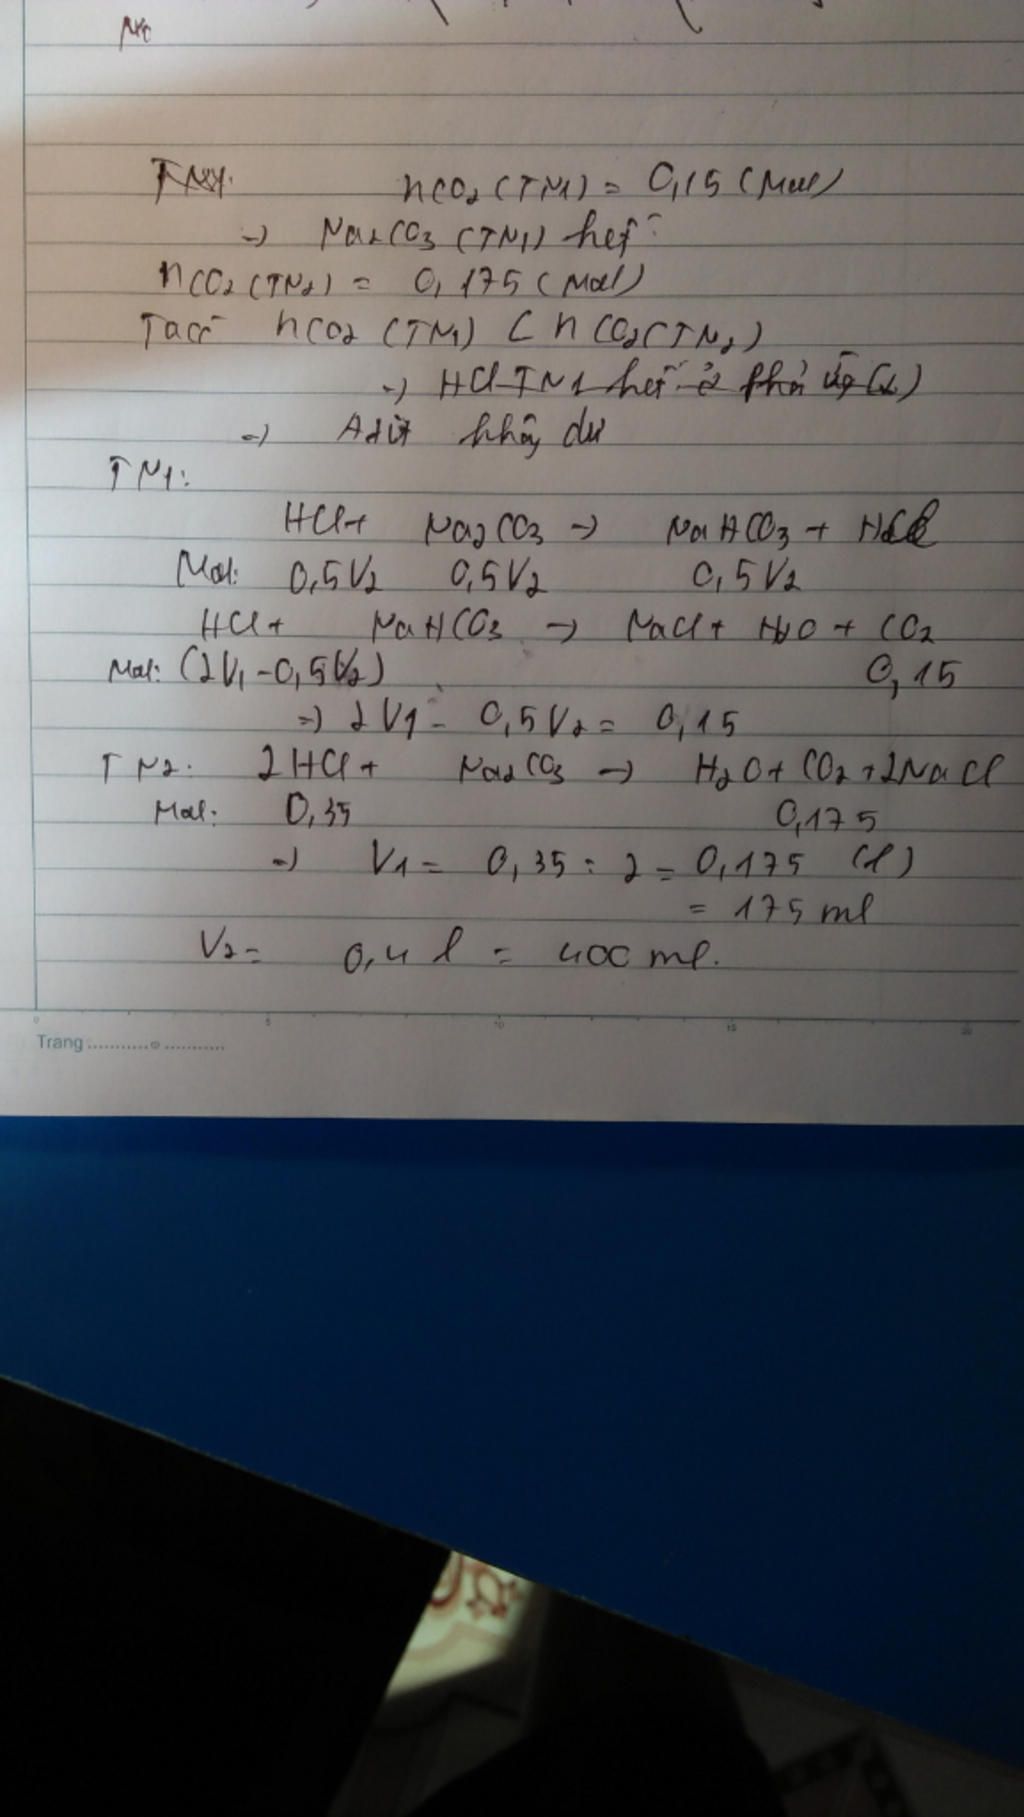 TN1: nCO2 (TN1) = 0,15 (Mol)
=) Na2CO3 (TN1) hết
nCO2 (TN2) = 0,175 (Mol)
Ta có nCO2 (TN1) < nCO2 (TN2)
=) HCl TN1 hết ở phả ứg (2)
=) Axit khôg dư
TN1:
HCl + Na2CO3 -> NaHCO3 +
Mol: 0,5V2 0,5V2 0,5V2
HCl + NaHCO3 -> NaCl + H2O + CO2
Mol: (2V1 - 0,5V2) 0,15
=) 2V1 - 0,5V2 = 0,15
TN2: 2HCl + Na2CO3 -> H2O + CO2 + 2NaCl
Mol: 0,35 0,175
=) V1 = 0,35 : 2 = 0,175 (l)
= 175 ml
V2 = 0,4 l = 400 ml.
Trang